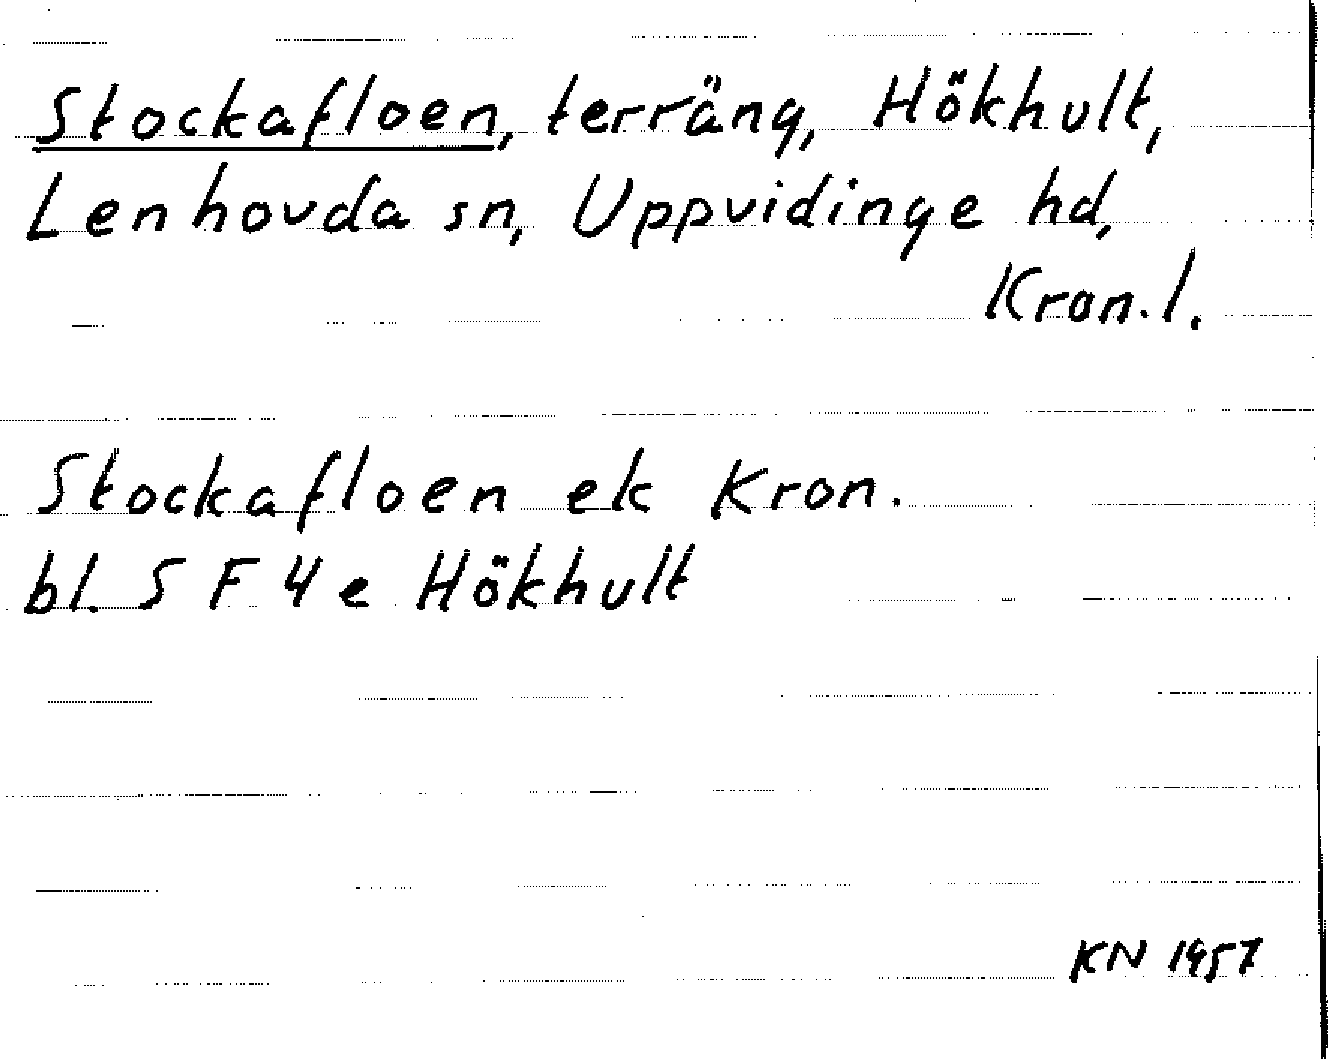 Stockafloen, terräng, Hökhult,
Lenhovda sn, Uppvidinge hd,
Kron.l.
Stockafloen ek Kron.
bl. 5 F 4 e Hökhult
KN 1957